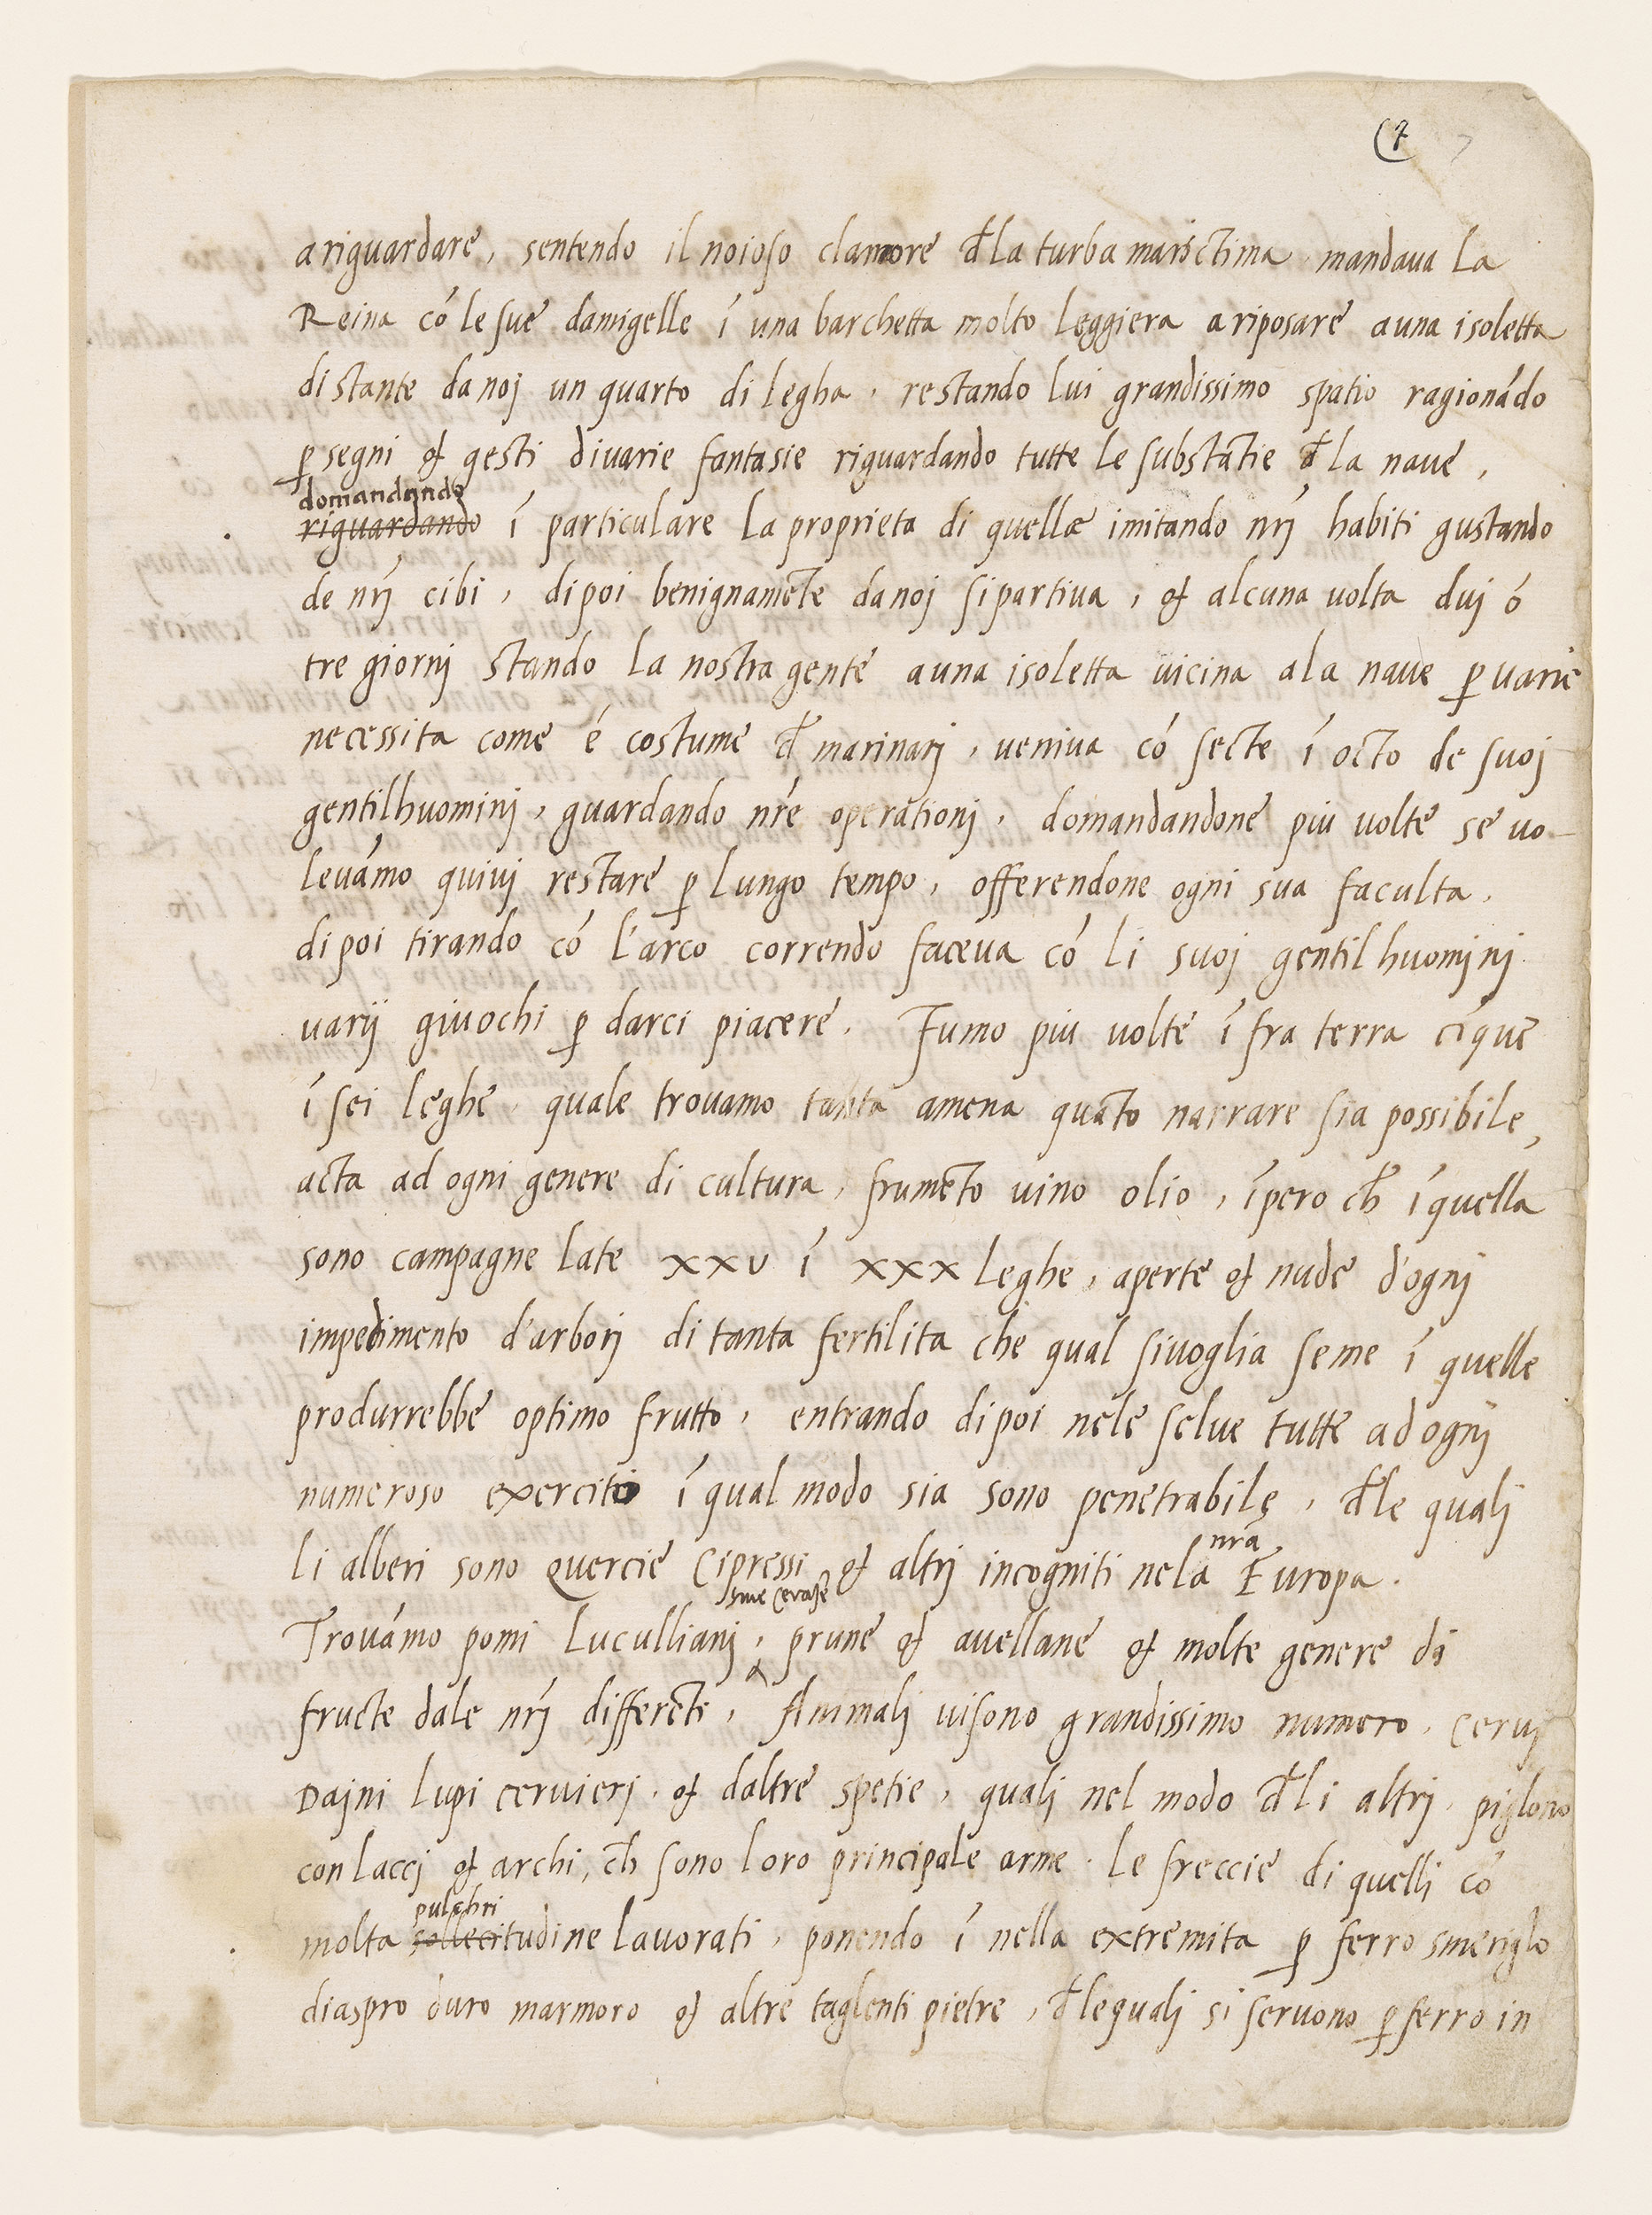 (7
a riguardare, sentendo il noioso clamore đla turba marictima mandava la
Reina có le sue damigelle í una barchetta molto leggiera a riposare a una isoletta
distante da noj un quarto di legha, restando lui grandissimo spatio ragionádo
ꝑ segni & gesti di varie fantasie riguardando tutte le substátie đ la nave,
domandando
riguardando í particulare la proprieta di quelle imitando nrj́ habiti gustando
de nrj́ cibi, dipoi benignaméte da noj si partiva, & alcuna volta duj ó
tre giornj stando la nostra gente a una isoletta vicina a la nave ꝑ varie
necessita come é costume đ marinarj, veniva có secte í octo de suoj
gentilhuominj, guardando nŕe operationj, domandandone piu volte se vo-
levámo quivj restare ꝑ lungo tempo, offerendone ogni sua faculta.
di poi tirando có l'arco correndo faceva có li suoj gentilhuominj
varij giuochi ꝑ darci piacere. Fumo piu volte í fra terra cíque
í sei leghe, quale trovamo tanta amena quáto narrare sia possibile,
acta ad ogni genere di cultura, fruméto vino olio, ípero cħ í quella
sono campagne late xxv í xxx leghe, aperte & nude d'ognj
impedimento d'arborj di tanta fertilita che qual si voglia seme í quelle
produrrebbe optimo frutto, entrando dipoi nele selve tutte ad ognj
numeroso exercito í qual modo sia sono penetrabile, đle qualj
li alberi sono Quercie Cipressi & altrj incogniti nela nŕa Europa.
sive Cerase
Trovámo pomi Lucullianj, prune & avellane & molte genere di
fructe dale nrj́ differéti, Animalj vi sono grandissimo numero, Cervj
Dajni lupi cervierj & d'altre spetie, qualj nel modo đ li altrj piglono
con laccj & archi, cħ sono loro principale arme. le freccie di quelli có
pulchri
molta sollecitudine lavorati, ponendo í nella extremita ꝑ ferro smeriglo
diaspro duro marmoro & altre taglenti pietre, đ le qualj si servono ꝑ ferro in